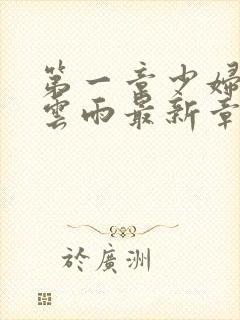 第一章少婦
雲雨最新章
於廣洲